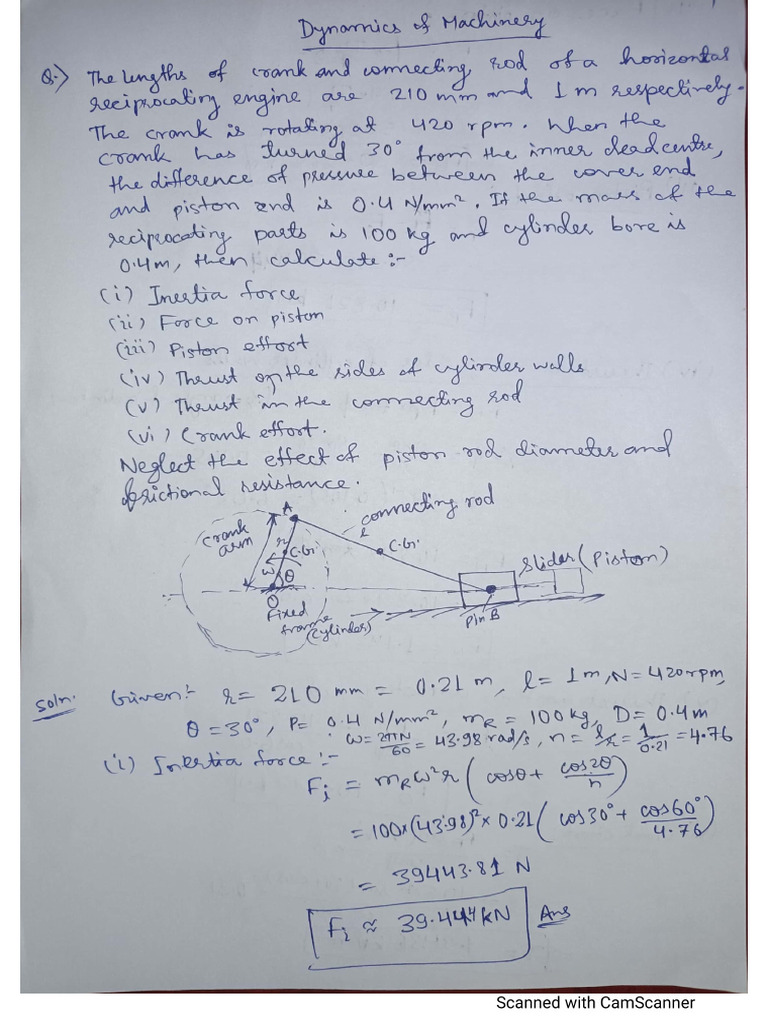 Dynamics of Machinery
Q.) The lengths of crank and connecting rod of a horizontal
reciprocating engine are 210 mm and 1 m respectively.
The crank is rotating at 420 rpm. When the
crank has turned 30° from the inner deadcentre,
the difference of pressure between the cover end
and piston end is 0.4 N/mm². If the mass of the
reciprocating parts is 100 kg and cylinder bore is
0.4m, then calculate:-
(i) Inertia force
(ii) Force on piston
(iii) Piston effort
(iv) Thrust on the sides of cylinder walls
(v) Thrust in the connecting rod
(vi) Crank effort.
Neglect the effect of piston rod diameter and
frictional resistance.
A
connecting rod
crank
arm
r
l
C.G.
C.G.
Slider (Piston)
ω
θ
O
Fixed
frame
(cylinder)
Pin B
Soln. Given:- r = 210 mm = 0.21 m, l = 1 m, N = 420 rpm,
θ = 30°, P = 0.4 N/mm², mR = 100 kg, D = 0.4 m
ω = 2πN/60 = 43.98 rad/s, n = l/r = 1/0.21 = 4.76
(i) Inertia force:-
Fi = mRω²r (cosθ + cos2θ/n)
= 100×(43.98)²×0.21 (cos30° + cos60°/4.76)
= 39443.81 N
Fi ≈ 39.444 kN Ans
Scanned with CamScanner